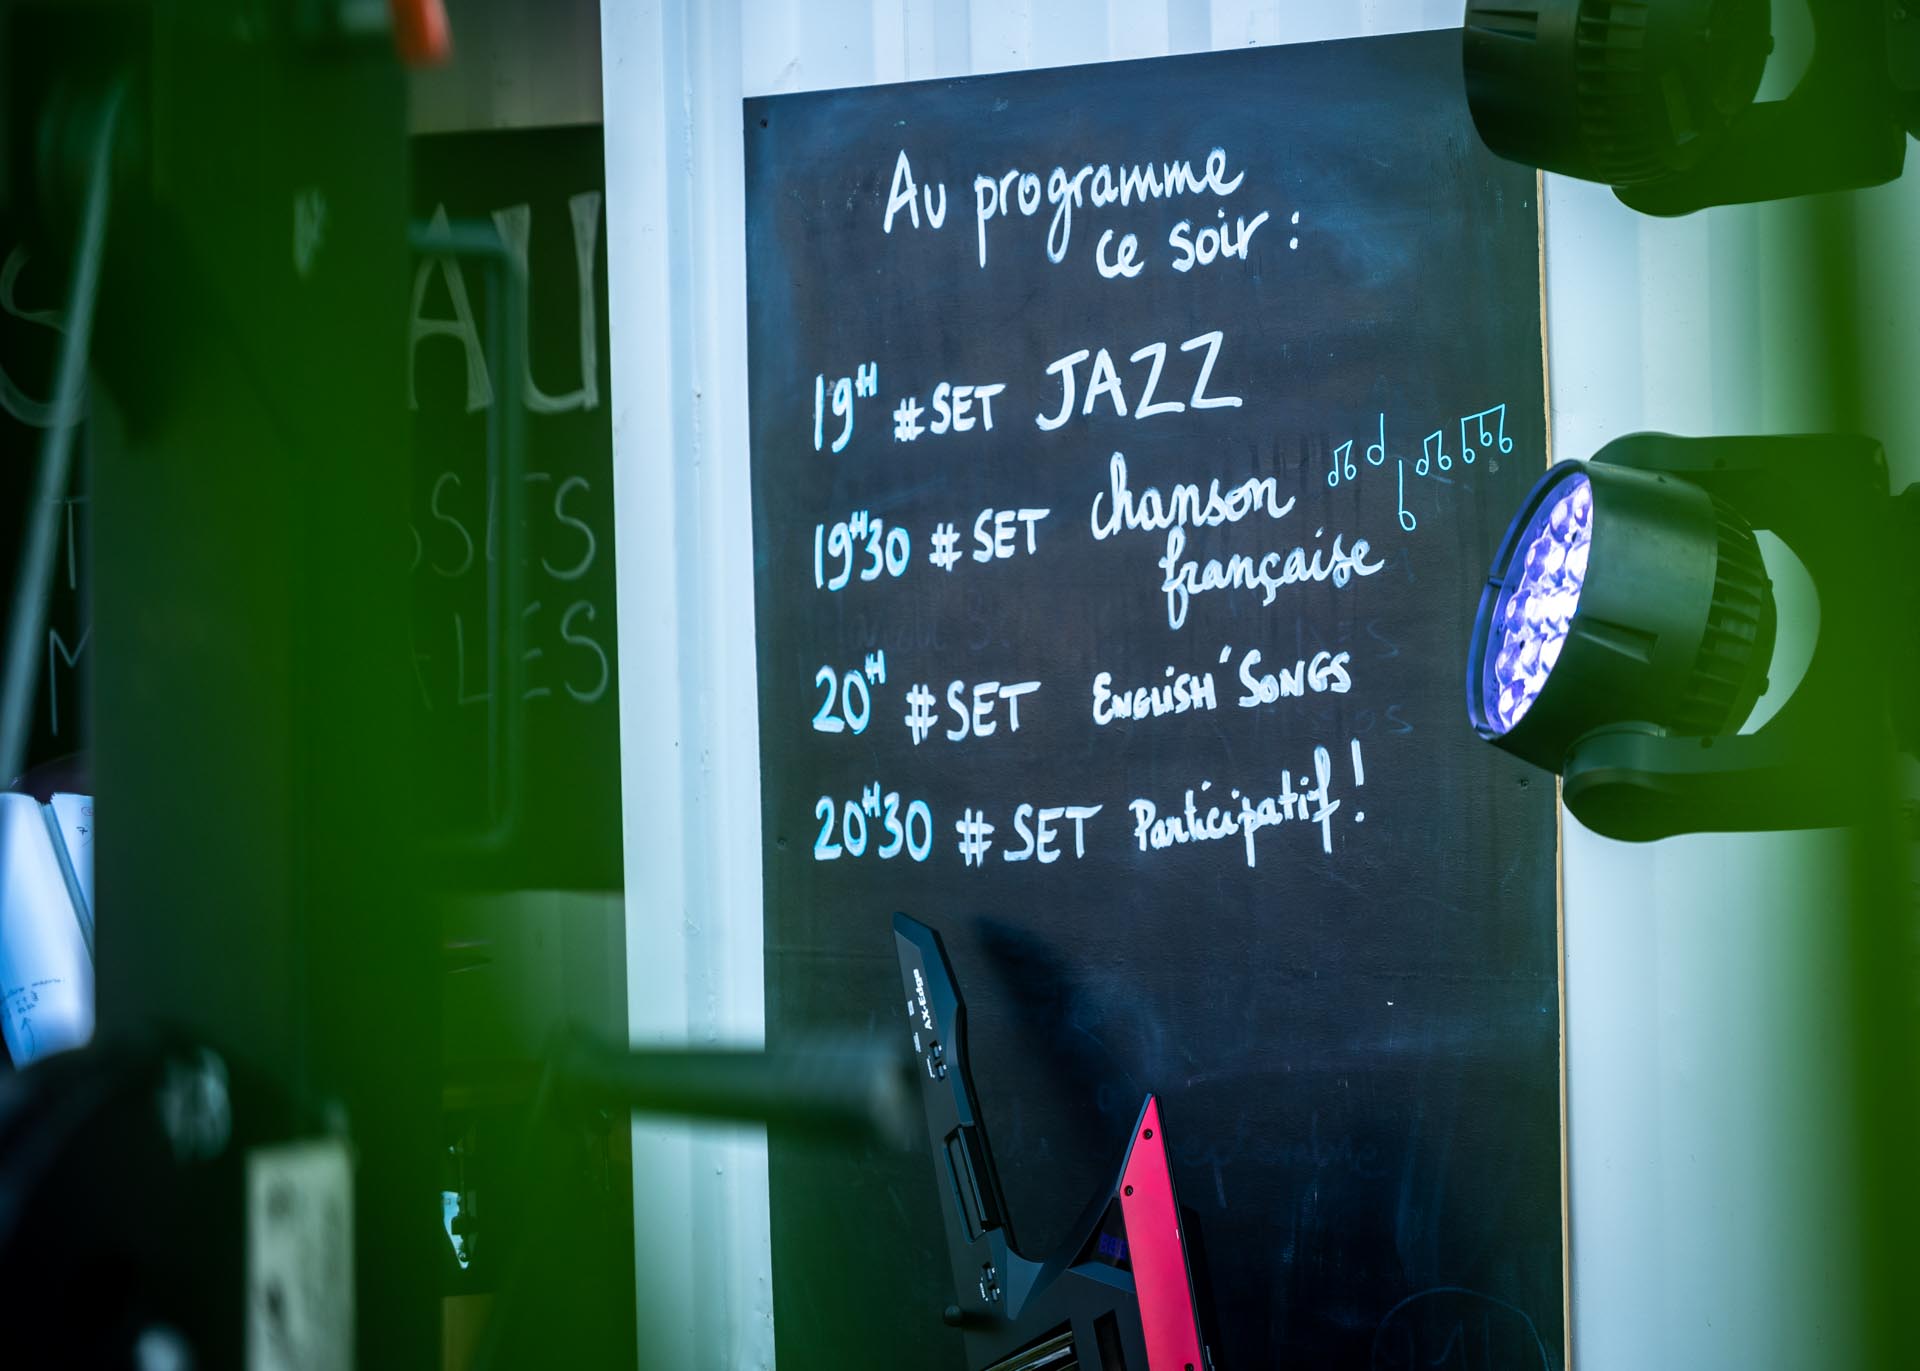 Au programme
ce soir :
19H #SET JAZZ
19H30 #SET chanson
française
20H #SET ENGLISH SONGS
20H30 # SET Participatif !
AU
SSES
LES
AX-Edge